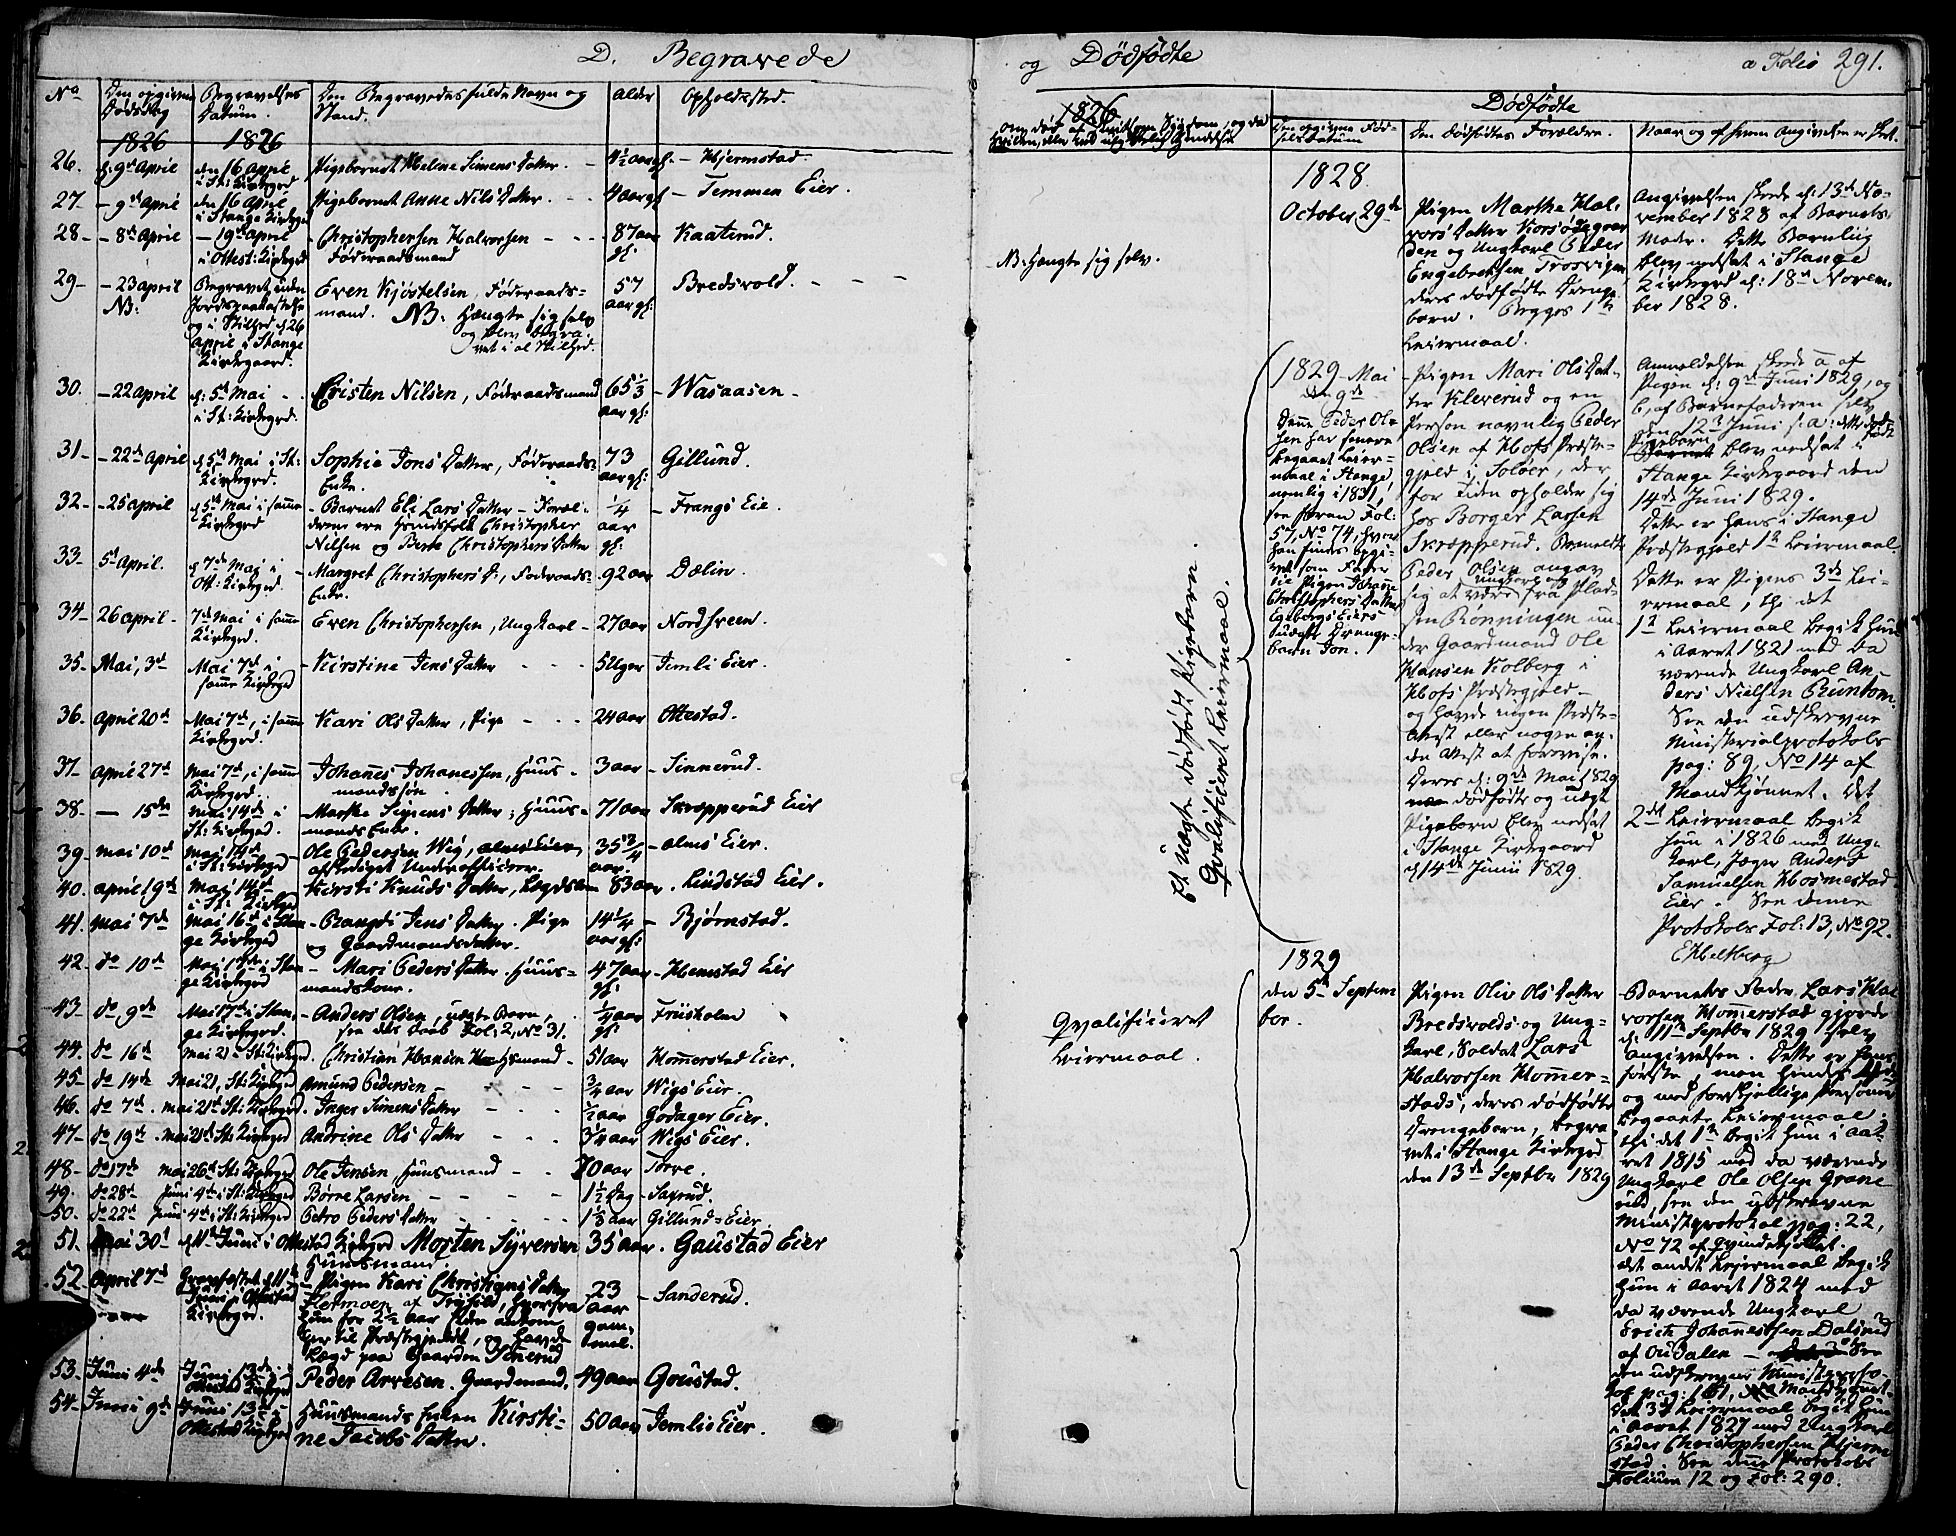 D. Begravede
No
Den opgivne Dødsdag
Begravelses Datum.
Den Begravedes fulde Navn og Stand.
Alder
Opholdssted.
1826
1826
26. d: 9de April
den 16 April i St: Kirkegrd
Pigebarnet Heline Simens Datter.
- Hjermstad
27. - 9de April
den 16 April i Stange Kirkegrd
Pigebarnet Anne Nils Datter.
4 aar gl
- Temmen Eier.
28 - - 8de April
- 19de April i Ottest: Kirkegrd
- Christophersen Halvorsen
Føderaadsmand
87 aar gl.
Kaaterud.
29 - - 23 april
NB:
Begravet uden Jordspaakastelse og i Stilhed d 26 April i Stange Kirkegaard.
Even Kjøstelsen, Føderaads-
mand. NB: Hængte sig selv
og blev begra-
vet i al Stilhed.
57 aar gl:
Bredsvold.
30. - 22 april
d: 5de Mai i St: Kirkegrd.
Cristen Nilsen, Føderaadsmand
65 1/3 aar gl:
- Wasaasen -
31 - - 22de April
d 5te Mai i St: Kirkegrd.
Sophie Jons Datter, Føderaads-
Enke.
73 aar gl:
Gillund.
32. - 25 april
d 5te Mai i samme Kirkegrd
- Barnet Eli Lars Datter - Foræl-
drene ere Huusfolk Christopher
Nilsen og Berte Christophers Datter
1/4 aar gl:
- Frangs Eie.
33 - 5d April.
d 7de Mai i Ott: Kirkegrd.
Margret Christophers D., Føderaads-
Enke.
92 aar
Dælin.
34 - 26 april -
7de Mai i samme Kirkegrd.
Even Christophersen, Ungkarl -
27 aar
Nordsveen.
35 - Mai, 3de
Mai 7de i samme Kirkegrd
- Kirstine Jens Datter
5 Uger
Jemli Eier.
36. april 20de
Mai 7de, i samme Kirkegrd.
- Kari Ols Datter, Pige
24 aar
Ottestad.
37 - april 27de
Mai 7de, i samme Kirkegrd.
Johannes Johanessen, Huus-
mandssøn.
3 aar
- Sinnerud.
38 - - 15de
Mai 14de i St: Kirkegrd.
- Marthe Simens Datter, Huus-
mands Enke.
71 aar
Skræpperud Eier
39 - mai 10de
Mai 14de i St: Kirkegrd
- Ole Pedersen Wig, Alms Eier,
afskediget Underofficier.
35 3/4 aar.
- Alms Eier.
40. april 19de
Mai 14de i St: Kirkegrd
Kirsti Knuds Datter, Lægdslem
83 aar
. Lindstad Eier.
41. Mai 7de
Mai 16de i Stange Kirkegrd
- Brangdi Jens Datter. Pige
og Gaardmandsdatter.
14 1/4 aar gl:
- Bjørnstad.
42. do 10de
Mai 17de i Stange Kirkegrd
- Mari Peders Datter. Huus-
mandskone.
47 aar gl:
- Hemstad Eier
43. do 9de
Mai 17de i Stange Kirkegrd.
- Anders Olsen, uægte Barn,
see dets Daab Fol: 2, No 31.
1/4 aar gl:
- Friisholm
44. do 16de
Mai 21 - St: Kirkegrd.
Christian Hansen Huusmand -
51 aar
Hommerstad Eier.
45 - do 14de
Mai 21, St: Kirkegrd
Amund Pedersen -
3/4 aar
Wigs Eier.
46. do 7de.
Mai 21de St: Kirkegrd.
Inger Simens Datter
1/2 aar
Godager Eier.
47 - do 19de
Mai 21de St: Kirkegrd
Andrine Ols Datter
3/4 aar
Wigs Eier.
48 - do 17de
Mai 26de St: Kirkegrd
Ole Jensen Huusmand
70 aar
- Torve.
49. do 28de
Juni 4de i St: Kirkegrd
Børre Larsen
1 1/2 Dag
- Saxrud.
50. do 22de
Juni 4de i St: Kirkegrd
Petro Peders Datter
Gillund-Eier
51. Mai 30te
d 11te Juni i Ottestad Kirkegrd
Morten Syversen
Huusmand.
35 aar.
Gaustad Eier
52 April 7de
Gravfæstet d 11te Juni i Ottestad Kirkegrd.
- Pigen Kari Christians Datter
Fletmoen af Trysild, hvorfra
hun for 2 1/2 Aar siden ankom
her til Præstegjeldet, og havde
Lægd paa Gaarden Sinerud
23 aar gammel.
- Sanderud.
53 - Juni 4de
Juni 13de i Ottestad Kirkegrd
Peder Arvesen. Gaardmand.
49 aar
Goustad.
54 - Juni 9de
Juni 13de - Ottestad Kirkegrd
Huusmands Enken Kirsti-
ne Jacobs Datter.
50 aar
Jemli Eier.
og Dødfødte
a Folio 291.
1826
Om død af smitsom Sygdom, og da
hvilken, eller ved ulykkelig Hændelse
NB: Hængte sig selv.
Dødfødte
Den opgivne Fød-
sels Datum
Den dødfødtes Forældre.
Naar og af hvem Angivelsen er skeet.
1828
October 29de
Pigen Marthe Hal-
vors Datter Korsødegaar-
den og Ungkarl Peder
Engebretsen Frosvigen
deres dødfødte Drenge-
barn. Begges 1ste
Leiermaal.
Angivelsen skede d: 13de No-
vember 1828 af Barnets
Moder. Dette Barnelig
blev nedsat i Stange
Kirkegrd d: 18de Novem-
ber 1828.
Et uægte dødfødt Pigebarn.
Qvalificeret Leiermaal.
1829 - Mai
den 9de
Denne Peder Ol-
sen har senere
begaaet Leier-
maal i Stange,
nemlig i 1831,
see foran Fol:
57, No 74, hvor
han findes opgi-
vet som Fader
til Pigen Johanne
Christophers Datter
Egebergs Eiers
uægte Drenge-
barn Jon.
- Pigen Mari Ols Dat-
ter Kleverud og en
Person navnlig Peder
Olsen af Hofs Præste-
gjeld i Soløer, der
for Tiden opholder sig
hos Borger Larsen
Skræpperud. Bemeldte
Peder Olsen angav
sig at være Ungkarl og fra Plad-
sen Rønningen un-
der Gaardmand Ole
Hansen Kolberg i
Hofs Præstegjeld -
og havde ingen Præste-
Attest eller nogen an-
den Attest at forevise.
Deres d: 9de Mai 1829
dødfødte og uægte
Pigebarn blev nedsat
i Stange Kirkegaard
d 14de Junii 1829.
Anmeldelsen skede a, af
Pigen d: 9de Juni 1829, og
b, af Barnefaderen selv
den 12te Juni s: a: dette døde fødte
Pigebarn blev nedsat i
Stange Kirkegaard den
14de Juni 1829.
Dette er hans i Stange
Præstegjeld 1ste Leiermaal.
Dette er Pigens 3de Lei-
ermaal, thi det
1ste Leiermaal begik hun
i Aaret 1821 med da
værende Ungkarl An-
ders Nielsen Buntom.
See den udskrevne
Ministerialprotokols
pag: 89, No 14 af
Mandkjønnet. Det
2det Leiermaal begik
hun i 1826 med Ung-
karl, Jæger Anders
Samuelsen Hosmestad
Eier. See denne
Protokols Fol: 13, No 92.
EHeltberg
Qvalificeret
Leiermaal.
1829
den 5te Septem
ber.
Pigen Oliv Ols Datter
Bredsvolds og Ung-
karl, Soldat Lars
Halvorsen Hommer-
stads, deres dødfødte
Drengebarn, begra-
vet i Stange Kirkegrd
den 13de Septbr 1829
Barnets Fader Lars Hal-
vorsen Hommerstad gjorde
d: 11te Septbr 1829 selv
Angivelsen. Dette er hans
første men hendes
og med forskjellige Personer
begaaede Leiermaal;
thi det 1ste begik hun i Aa-
ret 1815 med da værende
Ungkarl Ole Olsen Grane-
rud, see den udskrevne
Ministprotokol pag: 22,
No 72 af Qvindekjønnet.
Det andet Leiermaal begik
hun i Aaret 1824 med
da værende Ungkarl
Erich Johannesen Dalsrud
af Oudalen - See
den udskrevne Ministerpro-
tok pag: 161, Mandkjønnet.
Det 3de Leiermaal begik hun
i Aaret 1827 med Ungkarl
Peder Christophersen Hjerm-
stad. See denne Protokols
Folium 12 og Fol: 290.